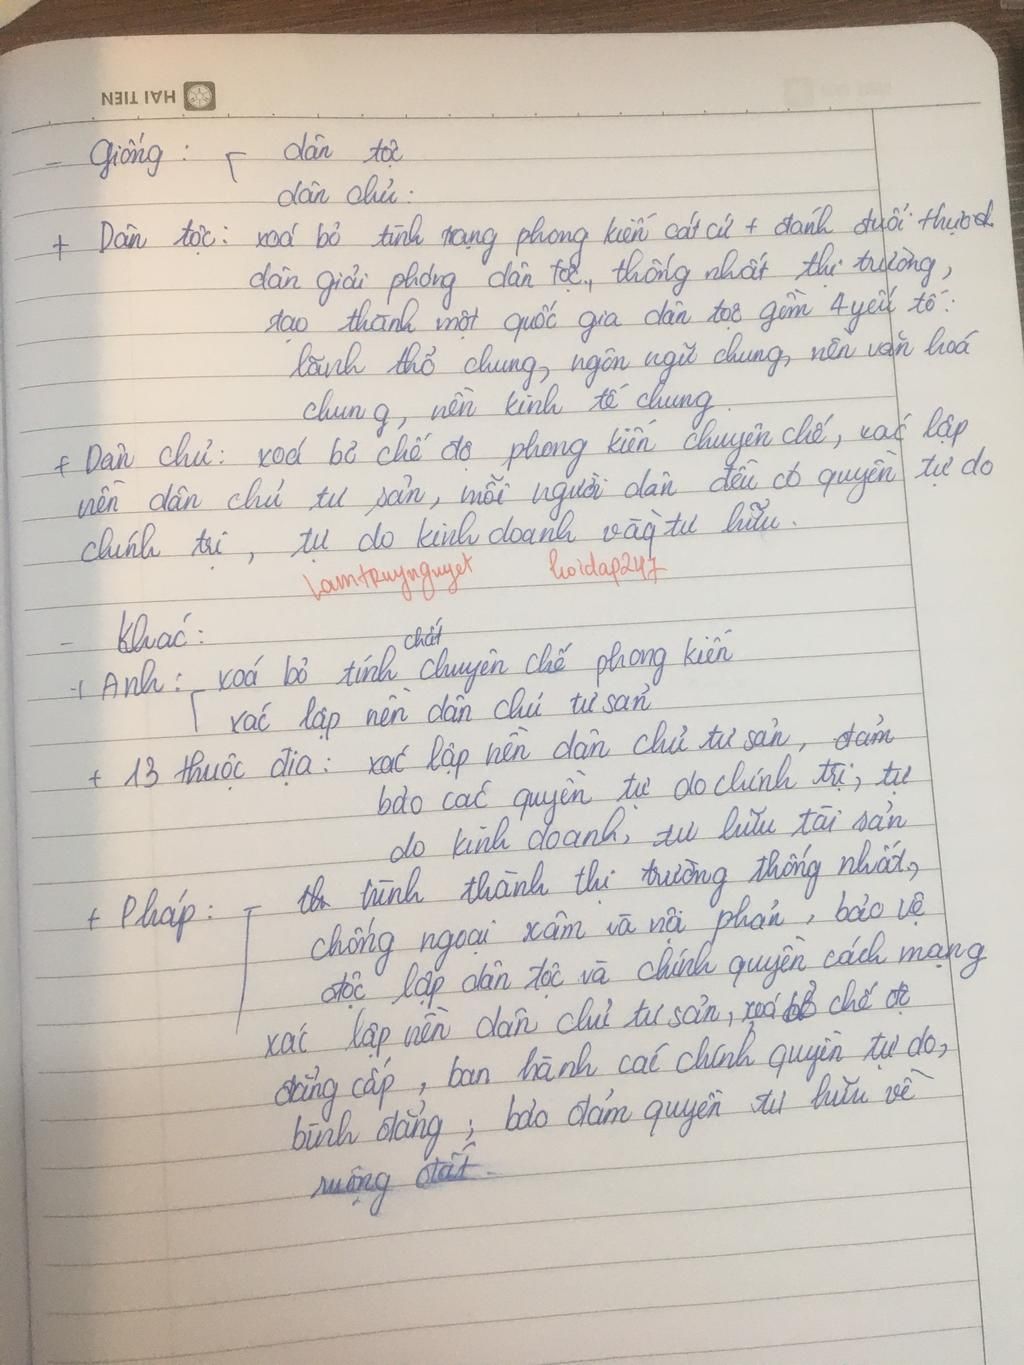 HAI TIEN
- Giống: dân tộc
dân chủ:
+ Dân tộc: xoá bỏ tình rạng phong kiến cát cứ + đánh đuổi thực
dân giải phóng dân tộc, thống nhất thị trường,
tạo thành một quốc gia dân tộc gồm 4 yếu tố:
lãnh thổ chung, ngôn ngữ chung, nền văn hoá
chung, nền kinh tế chung.
+ Dân chủ: xoá bỏ chế độ phong kiến chuyên chế, xác lập
nền dân chủ tư sản, mỗi người dân đều có quyền tự do
chính trị, tự do kinh doanh và tư hữu.
lamtruynguyet hoidap247
- Khác:
chất
+ Anh: xoá bỏ tính chuyên chế phong kiến
xác lập nền dân chủ tư sản
+ 13 thuộc địa: xác lập nền dân chủ tư sản, đảm
bảo các quyền tự do chính trị, tự
do kinh doanh, tư hữu tài sản
+ Pháp: hình thành thị trường thống nhất,
chống ngoại xâm và nội phản, bảo vệ
độc lập dân tộc và chính quyền cách mạng
xác lập nền dân chủ tư sản, xoá bỏ chế độ
đẳng cấp, ban hành các chính quyền tự do,
bình đẳng; bảo đảm quyền tư hữu về
ruộng đất.